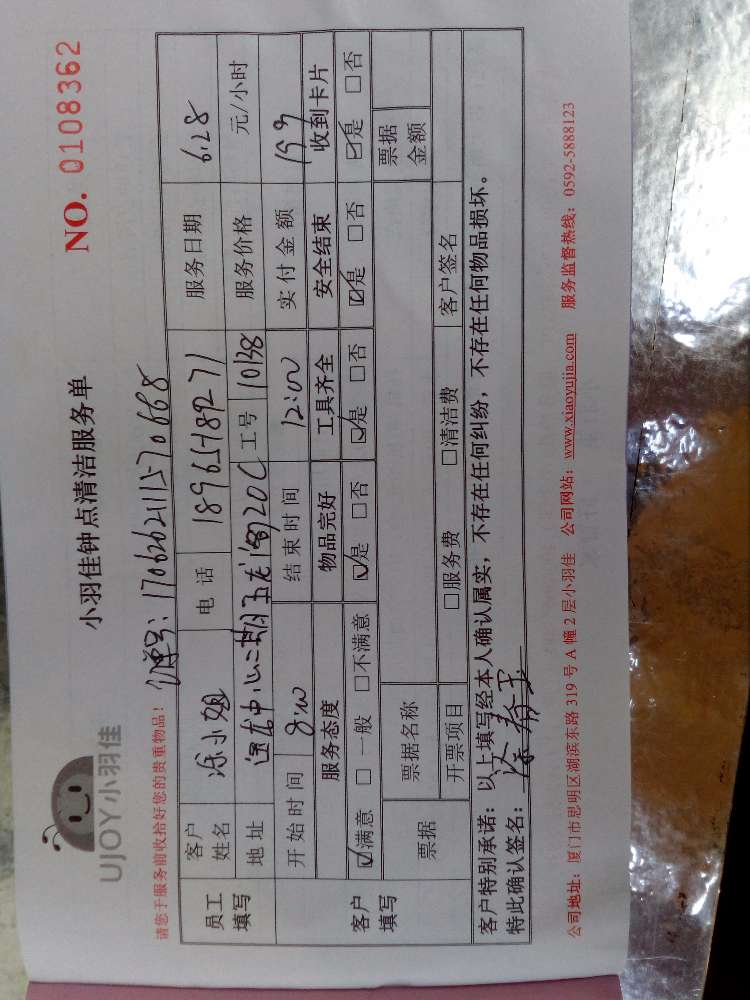 UJOY小羽佳
小羽佳钟点清洁服务单
NO. 0108362
请您于服务前收拾好您的贵重物品!
单号: 170626211570668
员工填写 客户姓名 小姐 电话 18965189271 服务日期 6.28
地址 二期 20C 工号 10138 服务价格 元/小时
开始时间 8:00 结束时间 12:00 实付金额 199
客户填写 服务态度 物品完好 工具齐全 安全结束 收到卡片
☑满意 □一般 □不满意 ☑是 □否 ☑是 □否 ☑是 □否 ☑是 □否
票据 票据名称 票据金额
开票项目 □服务费 □清洁费 客户签名
客户特别承诺: 以上填写经本人确认属实, 不存在任何纠纷, 不存在任何物品损坏。
特此确认签名:
公司地址: 厦门市思明区湖滨东路 319 号 A 幢 2 层小羽佳 公司网站: www.xiaoyujia.com 服务监督热线: 0592-5888123